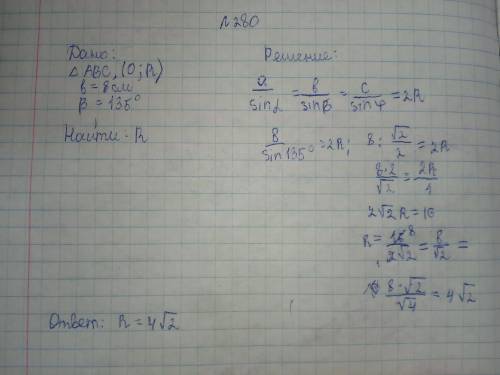 №280
Дано:
△ABC, (O; R)
b = 8см
β = 135°
Найти: R
Решение:
a/sinα = b/sinβ = c/sinφ = 2R
8/sin135° = 2R; 8 : √2/2 = 2R
8·2/√2 = 2R/1
2√2R = 16
R = 16 8/2√2 = 8/√2 =
8·√2/√4 = 4√2
Ответ: R = 4√2